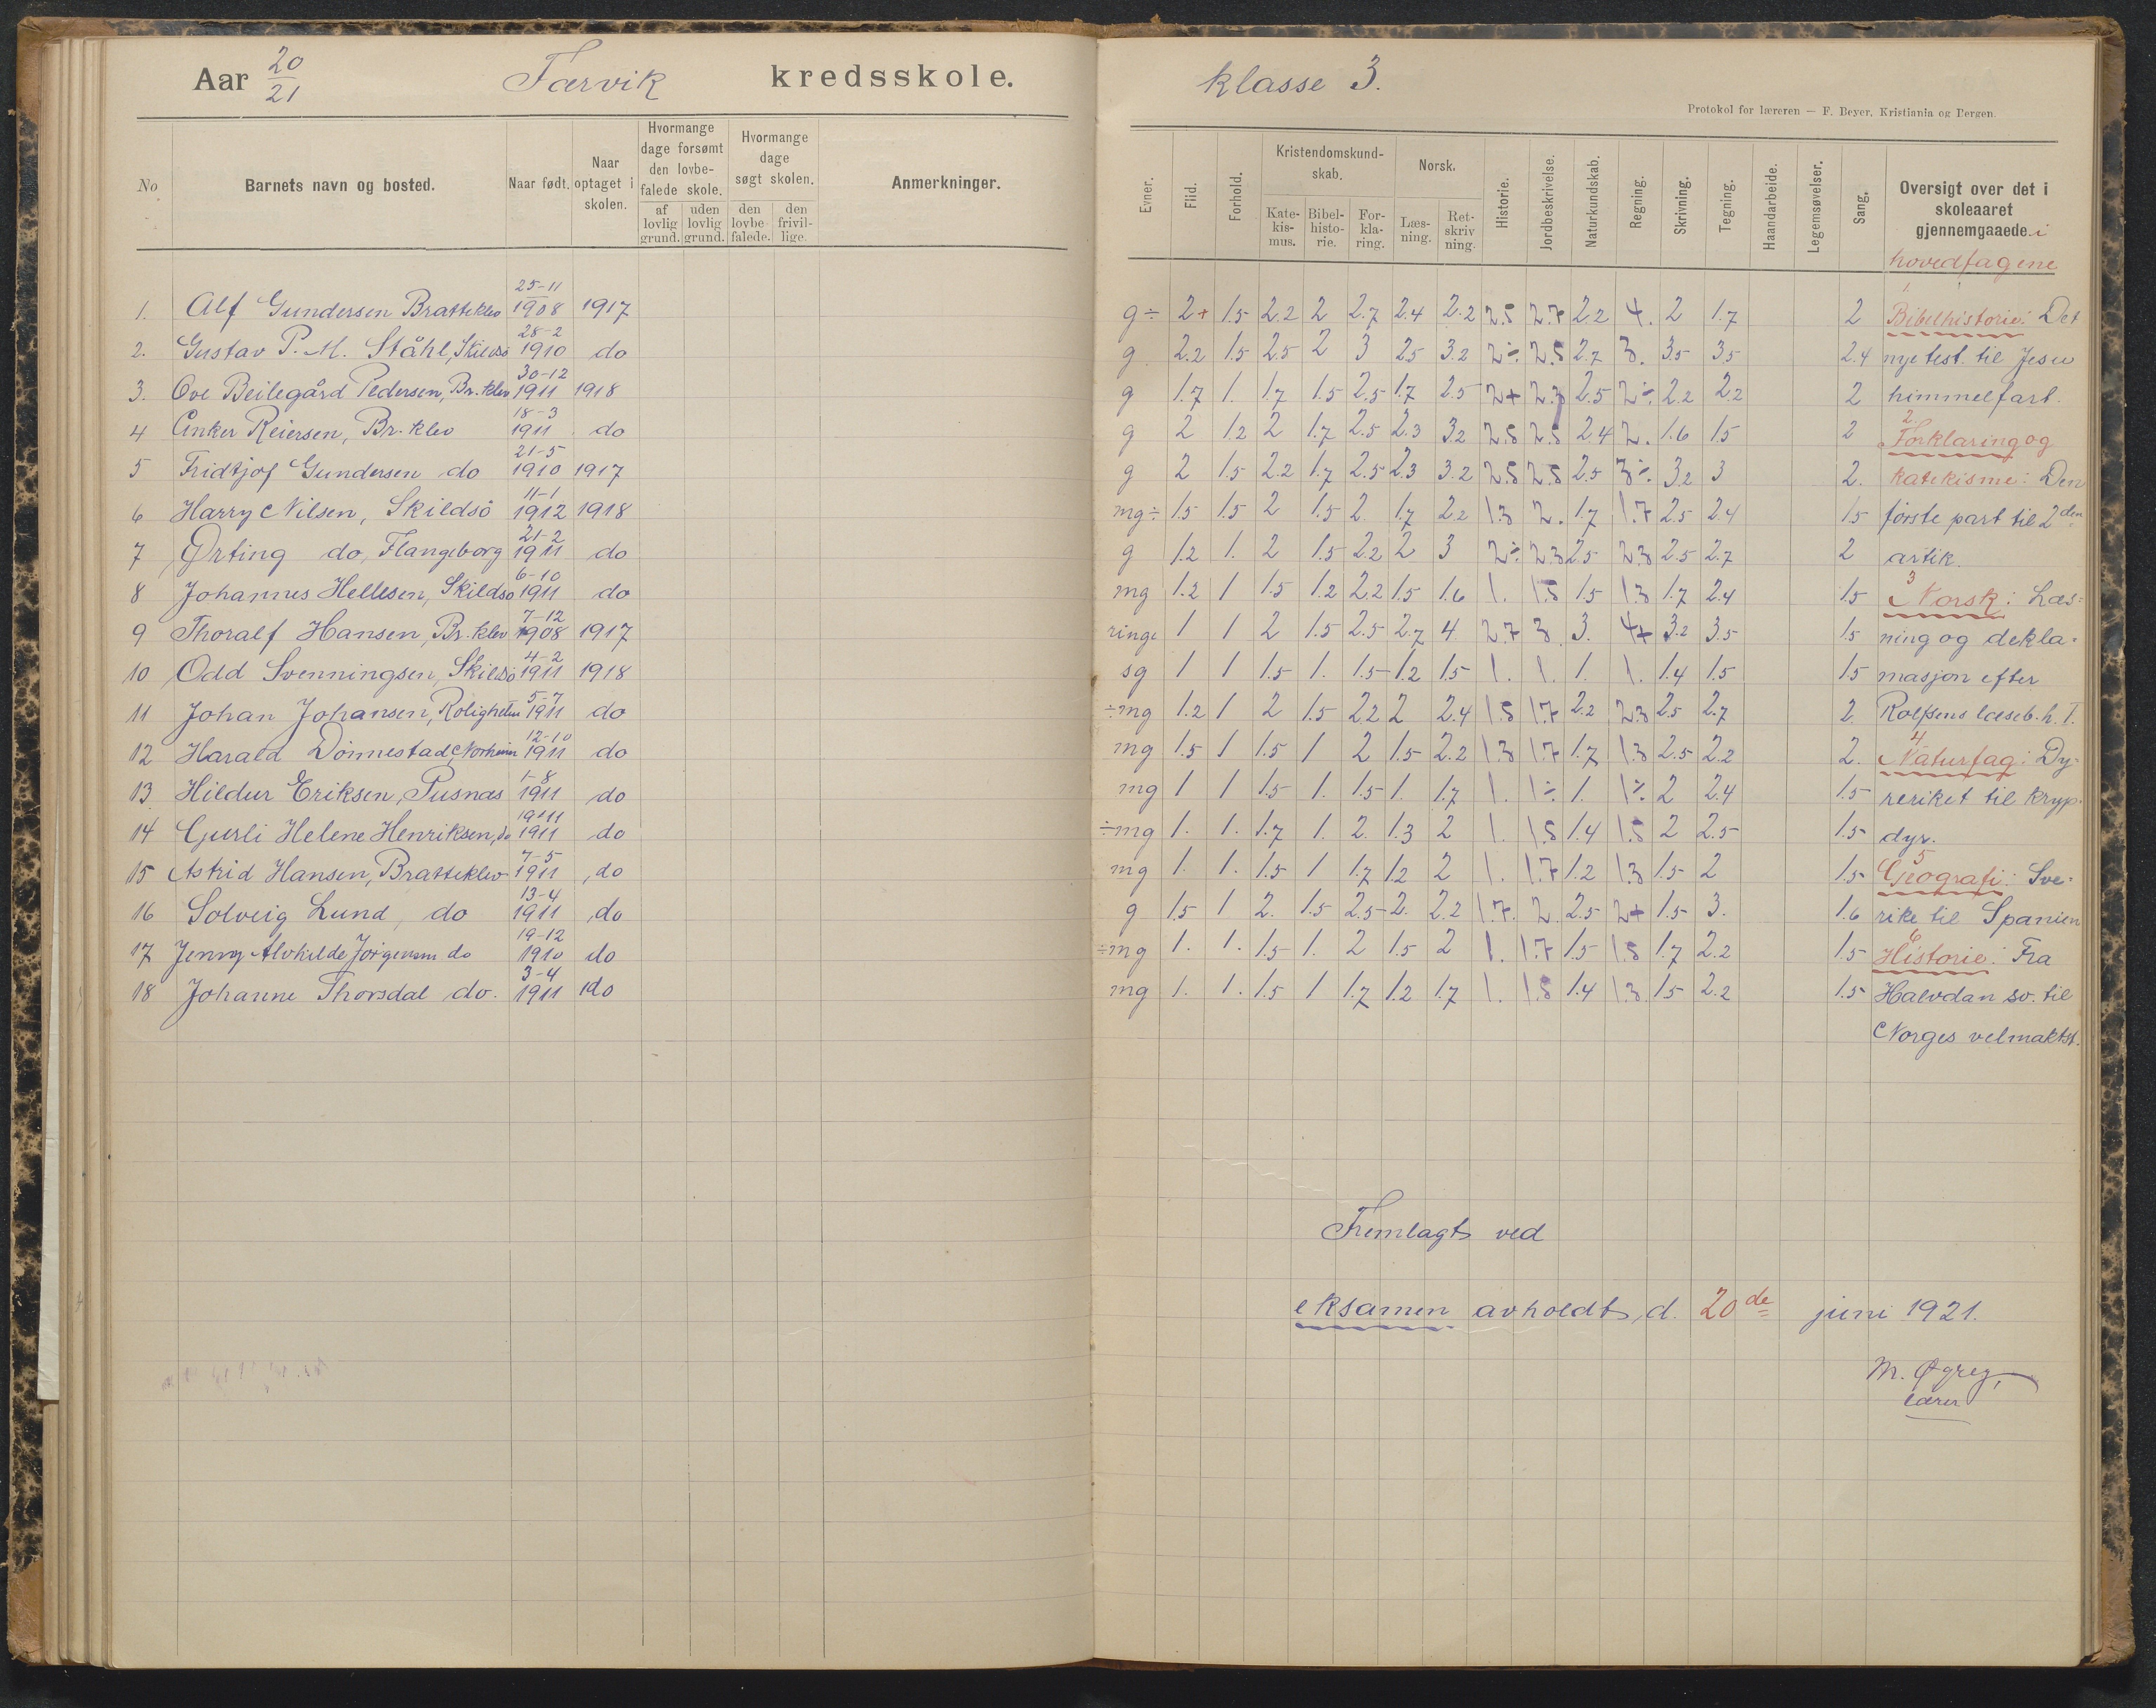 Aar 20/21 Færvik kredsskole.
klasse 3.
Protokol for læreren — F. Beyer, Kristiania og Bergen.
No
Barnets navn og bosted.
Naar født.
Naar optaget i skolen.
Hvormange dage forsømt den lovbefalede skole.
af lovlig grund.
uden lovlig grund.
Hvormange dage søgt skolen.
den lovbefalede.
den frivillige.
Anmerkninger.
Evner.
Flid.
Forhold.
Kristendomskundskab.
Katekismus.
Bibelhistorie.
Forklaring.
Norsk.
Læsning.
Retskrivning.
Historie.
Jordbeskrivelse.
Naturkundskab.
Regning.
Skrivning.
Tegning.
Haandarbeide.
Legemsøvelser.
Sang.
Oversigt over det i skoleaaret gjennemgaaede i
hovedfagene
1. Alf Gundersen Bratteklev 25-11 1908 1917 g÷ 2+ 1.5 2.2 2 2.7 2.4 2.2 2.5 2.7 2.2 4. 2 1.7 2
2. Gustav P. M. Ståhl, Skildsö 28-2 1910 do g 2.2 1.5 2.5 2 3 2.5 3.2 2÷ 2.5 2.7 3. 3.5 3.5 2.4
3. Ove Beilegård Pedersen, Br.klev 30-12 1911 1918 g 1.7 1. 1.7 1.5 2.5 1.7 2.5 2+ 2.3 2.5 2÷ 2.2 2.2 2
4 Anker Reiersen, Br.klev 18-3 1911 do g 2 1.2 2 1.7 2.5 2.3 3.2 2.5 2.5 2.4 2. 1.6 1.5 2
5 Fridtjof Gundersen do 21-5 1910 1917 g 2 1.5 2.2 1.7 2.5 2.3 3.2 2.5 2.5 2.5 3÷ 3.2 3 2.
6 Harry Nilsen, Skildsö 11-1 1912 1918 mg÷ 1.5 1.5 2 1.5 2. 1.7 2.2 1.3 2. 1.7 1.7 2.5 2.4 1.5
7 Ørting do, Flangeborg 21-2 1911 do g 1.2 1. 2 1.5 2.2 2 3 2÷ 2.3 2.5 2.3 2.5 2.7 2
8 Johannes Hellesen, Skildsö 6-10 1911 do mg 1.2 1 1.5 1.2 2.2 1.5 1.6 1. 1.5 1.5 1.3 1.7 2.4 1.5
9 Thoralf Hansen, Br.klev 7-12 1908 1917 ringe 1 1 2 1.5 2.5 2.7 4 2.7 3 3. 4+ 3.2 3.5 1.5
10 Odd Svenningsen, Skildsö 4-2 1911 1918 sg 1 1 1.5 1. 1.5 1.2 1.5 1. 1. 1. 1. 1.4 1.5 1.5
11 Johan Johansen, Rolighetun 5-7 1911 do ÷mg 1.2 1 2 1.5 2.2 2 2.4 1.5 1.7 2.2 2.3 2.5 2.7 2
12 Harald Dönnestad, Norheim 12-10 1911 do mg 1.5 1 1.5 1 2 1.5 2.2 1.3 1.7 1.7 1.3 2.5 2.2 2.
13 Hildur Eriksen, Pusnæs 1-8 1911 do mg 1 1 1.5 1. 1.5 1. 1.7 1. 1÷ 1. 1÷ 2 2.4 1.5
14 Gurli Helene Henriksen, do 19-11 1911 do ÷mg 1. 1. 1.7 1. 2. 1.3 2 1. 1.5 1.4 1.5 2 2.5 1.5
15 Astrid Hansen, Bratteklev 7-5 1911 do mg 1. 1. 1.5 1 1.7 1.2 2 1. 1.7 1.2 1.3 1.5 2 1.5
16 Solveig Lund, do 13-4 1911 do g 1.5 1 2. 1.5 2.5 2. 2.2 1.7. 2. 2.5 2+ 1.5 3. 1.6
17 Jenny Alvhilde Jörgensen do 19-12 1910 do ÷mg 1. 1. 1.5 1. 2 1.5 2 1. 1.7 1.5 1.5 1.7 2.2 1.5
18 Johanne Thorsdal do. 3-4 1911 do mg 1. 1. 1.5 1 1.7 1.2 1.7 1. 1.5 1.4 1.3. 1.5 2.2 1.5
1
Bibelhistorie: Det
nye test. til Jesu
himmelfart.
2.
Forklaring og
katekisme: Den
förste part til 2den
artik.
3
Norsk: Læs=
ning og dekla=
masjon efter
Rolfsens læseb. h. I.
4
Naturfag: Dy=
reriket til kryp=
dyr.
5
Geografi: Sve=
rike til Spanien
6
Historie: Fra
Halvdan sv. til
Norges velmaktst.
Fremlagt ved
eksamen avholdt, d. 20de juni 1921.
M. Øgrey,
lærer